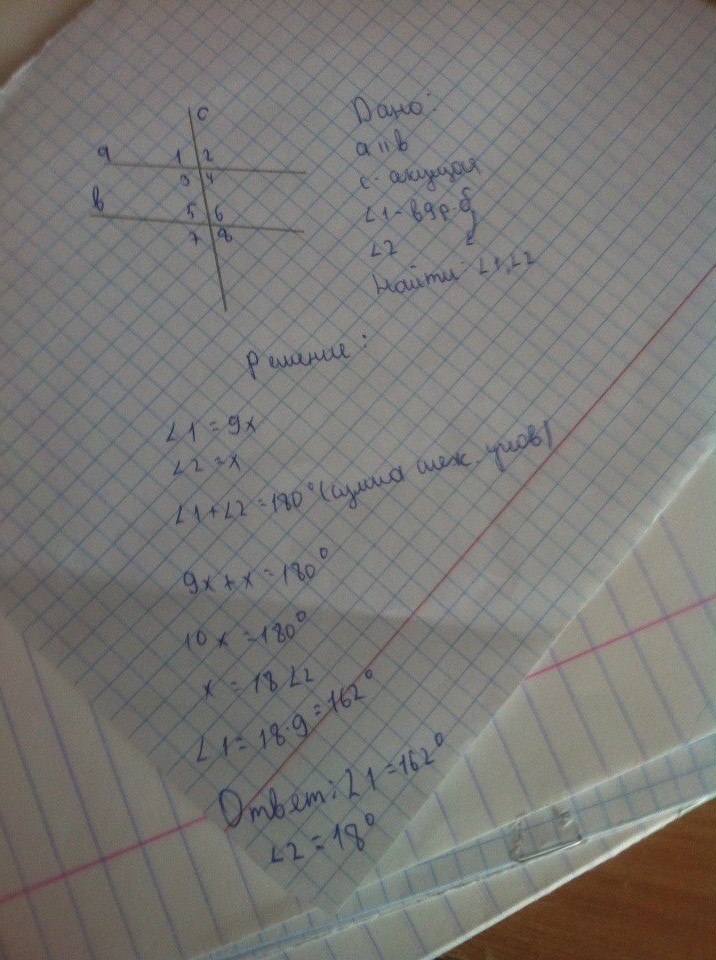 c
a 1 2
3 4
в 5 6
7 8
Дано:
a || в
c - секущая
∠1 - в 9 р. б.
∠2
Найти: ∠1, ∠2
Решение:
∠1 = 9x
∠2 = x
∠1 + ∠2 = 180° (сумма смеж. углов)
9x + x = 180°
10 x = 180°
x = 18 ∠2
∠1 = 18 · 9 = 162°
Ответ: ∠1 = 162°
∠2 = 18°